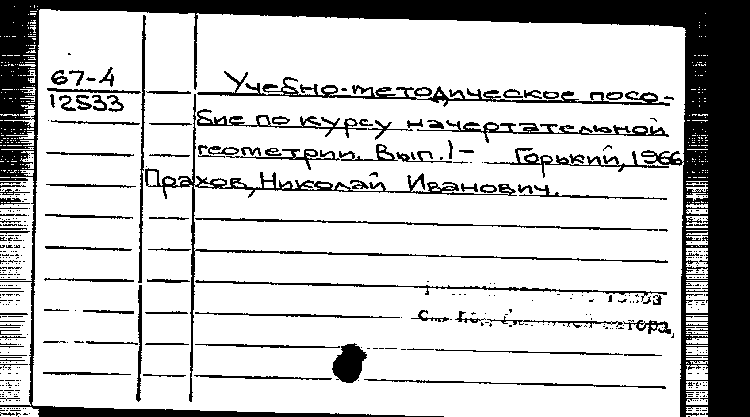 67-4
12533
Учебно-методическое посо-
бие по курсу начертательной
геометрии. Вып. 1- Горький, 1966
Прахов, Николай Иванович.
автора,